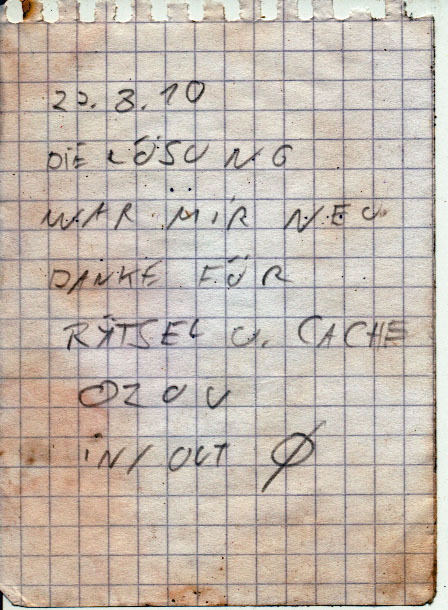 22.8.10
DIE LÖSUNG
WAR MIR NEU
DANKE FÜR
RÄTSEL U. CACHE
OZOU
IN/OUT Ø